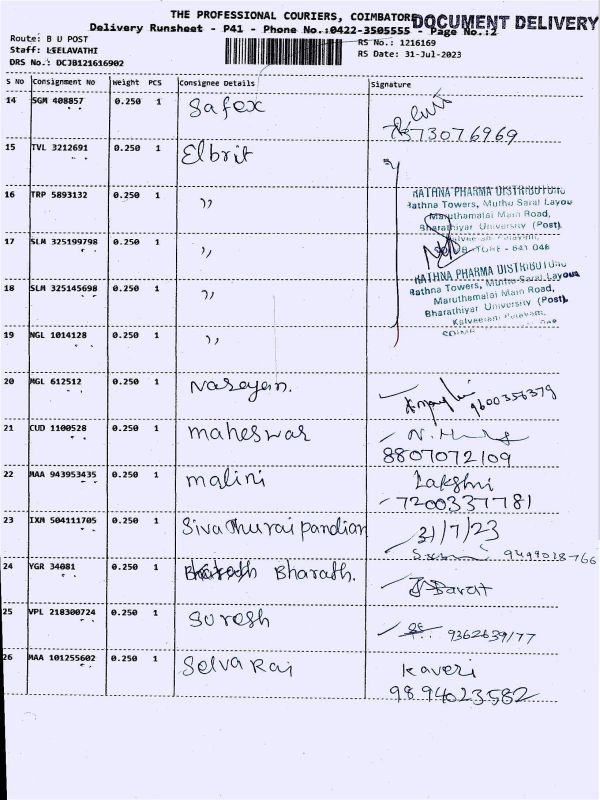 THE PROFESSIONAL COURIERS, COIMBATORE
DOCUMENT DELIVERY
Delivery Runsheet - P41 - Phone No.:0422-3505555 - Page No.:2
Route: B U POST
RS No.: 1216169
Staff: LEELAVATHI
RS Date: 31-Jul-2023
DRS No.: DCJB121616902
S No Consignment No Weight PCS Consignee Details Signature
14 SGM 408857 0.250 1 Safex
7373076969
15 TVL 3212691 0.250 1 Elbrit
16 TRP 5893132 0.250 1 ,,
RATHNA PHARMA DISTRIBUTORS
Rathna Towers, Muthu Saral Layou
Maruthamalai Main Road,
Bharathiyar University (Post)
17 SLM 325199798 0.250 1 ,,
641 046
RATHNA PHARMA DISTRIBUTORS
18 SLM 325145698 0.250 1 ,,
Rathna Towers, Muthu Saral Layou
Maruthamalai Main Road,
Bharathiyar University (Post),
Kalveeram Palayam,
19 NGL 1014128 0.250 1 ,,
20 MGL 612512 0.250 1 Narayan.
9600356379
21 CUD 1100528 0.250 1 maheswar
8807072109
22 MAA 943953435 0.250 1 malini Lakshni
7200337781
23 IXM 504111705 0.250 1 Sivathurai pandian 31/7/23
24 YGR 34081 0.250 1 Bharath.
Barat
25 VPL 218300724 0.250 1 Suresh
9362639177
26 MAA 101255602 0.250 1 Selva Raj Kaveri
9894023582